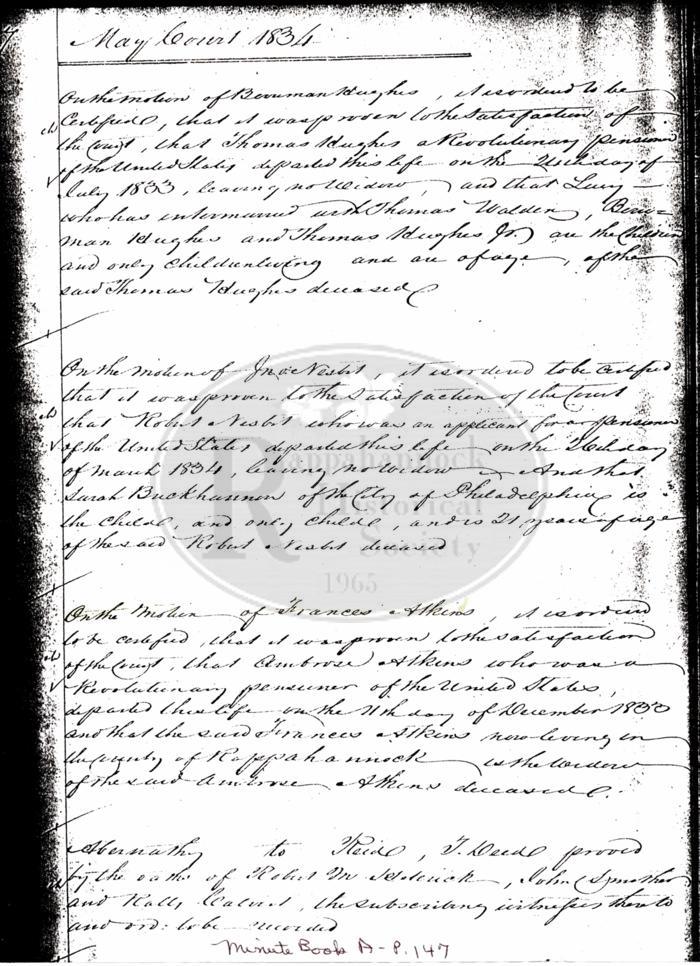 May Court 1834
On the motion of Bowman Hughes, it is ordered to be
Certified, that it was proven to the satisfaction of
the Court, that Thomas Hughes a Revolutionary pensioner
of the United States departed this life on the day of
July 1833, leaving no widow, and that Lucy
who has intermarried with Thomas Walden, Bow=
man Hughes and Thomas Hughes Jr. are the Children
and only children living and are of age, of the
said Thomas Hughes deceased
On the motion of Jno. Nesbit, it is ordered to be certified
that it was proven to the satisfaction of the Court
that Robert Nesbit who was an applicant for a pensioner
of the United States departed this life on the day
of March 1834 leaving no widow And that
Sarah Buckhannon of the City of Philadelphia is
the Childe, and only Childe, and is 21 years of age
of the said Robert Nesbit deceased
On the Motion of Frances Atkins, it is ordered
to be certified, that it was proven to the satisfaction
of the Court, that Ambrose Atkins who was a
Revolutionary pensioner of the United States,
departed this life on the 11th day of December 1833
and that the said Frances Atkins now living in
the County of Rappahannock is the Widow
of the said Ambrose Atkins deceased.
Abernathy to Reid, T. Deed proved
by the oaths of Robert M. , John
and Calvert, the subscribing witnesses thereto
and ord: to be recorded
Minute Book A-P. 147
Rappahannock
Historical
Society
1965